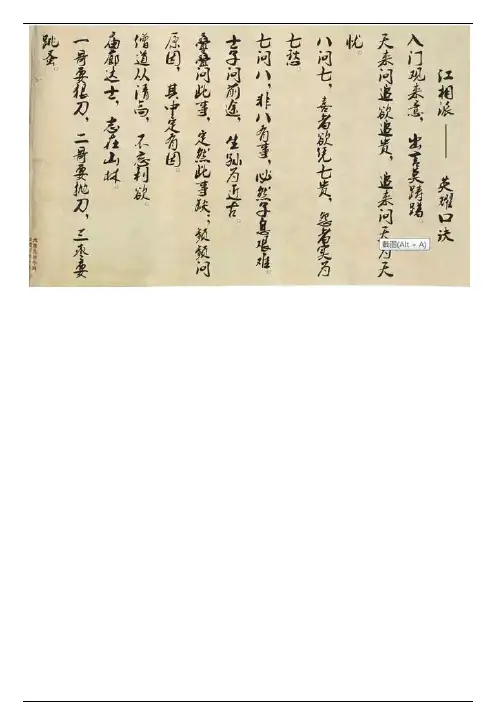 江相派——英耀口诀
入门观来意，出言莫踌躇。
天来问追欲追贵，追来问天为天
忧。
八问七，喜者欲凭七贵，怨者实为
七愁。
七问八，非八有事，必然子息艰难。
士子问前途，生孙为近古。
叠叠问此事，定然此事缺；频频问
原因，其中定有因。
僧道从清高，不忘利欲。
庙廊达士，志在山林。
一哥要狠刀，二哥要抛刀，三丞要
跳蚤。
截图(Alt + A)